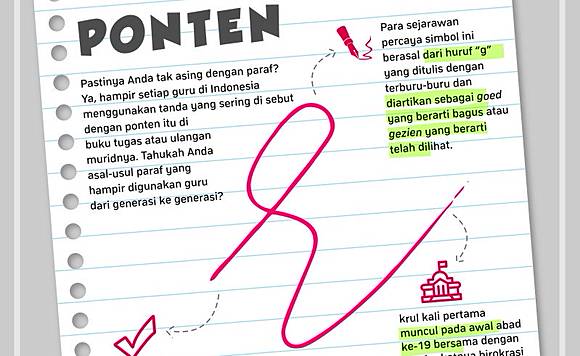 PONTEN
Pastinya Anda tak asing dengan paraf?
Ya, hampir setiap guru di Indonesia
menggunakan tanda yang sering di sebut
dengan ponten itu di
buku tugas atau ulangan
muridnya. Tahukah Anda
asal-usul paraf yang
hampir digunakan guru
dari generasi ke generasi?
Para sejarawan
percaya simbol ini
berasal dari huruf "g"
yang ditulis dengan
terburu-buru dan
diartikan sebagai goed
yang berarti bagus atau
gezien yang berarti
telah dilihat.
krul kali pertama
muncul pada awal abad
ke-19 bersama dengan
birokrasi